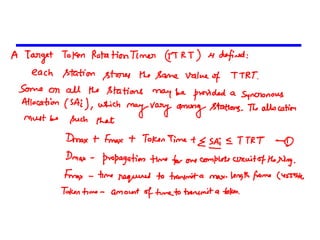 A Target Token Rotation Timer (TTRT) is defined:
each station stores the same value of TTRT.
Some on all the stations may be provided a Syncronous
Allocation (SAi), which may vary among stations. The allocation
must be such that
Dmax + Fmax + Token Time + ≤ SAi ≤ TTRT — ①
Dmax - propagation time for one complete circuit of the ring.
Fmax - time required to transmit a max. length frame (4500
Token time - amount of time to transmit a token.